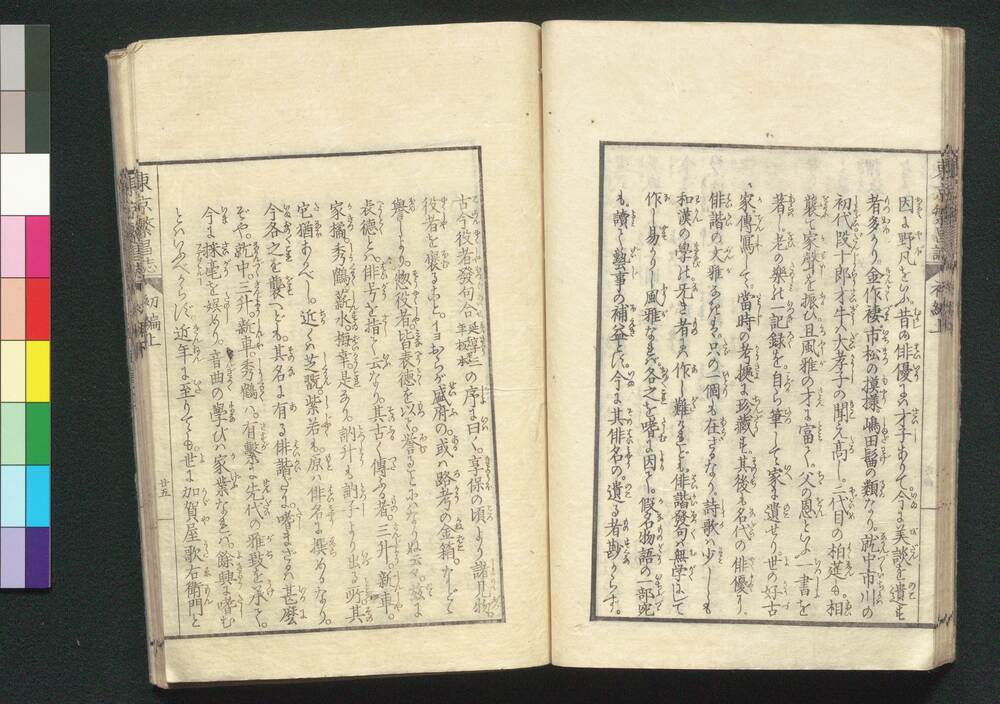 因に野凡をいふ昔の俳優にハ才子ありて今に美談を遺すも
者多かり金作褄市松の摸樣嶋田髷の類なり就中市川の
初代段十郎才牛ハ大孝子の聞え高し二代目の栢莚も相
襲て家聲を振ひ且風雅の才に富ミ父の恩といふ一書を
著し老の樂の一記録を自ら筆して家に遺せり世の好古
家傳寫して當時の考據に珍藏も其後も名代の俳優ハ
俳諧の大雅なるも只の一個も在さるなり詩歌ハ少しも
和漢の學は无き者の作し難けれども俳諧發句ハ無學にて
作し易かりし風雅なれバ各之を嗜に因て假名物語の一部宛
も讀て藝事の補益とす今に其俳名の遺る者尠からず
古今役者發句合 延享三年板本 の序に曰く享保の頃より諸見物
役者を襃ること イヨおらが盛府の或ハ路考の金箱などゝ
譽しより惣役者皆表德を以て譽ることにハなりぬ云々茲に
表德とハ俳号を指して云なり其古く傳ふる者三升新車
家橘秀鶴薪水梅幸是あり訥升も訥子より出る所其
它猶あるべし近くハ芝翫紫若も原ハ俳名に撰めるなり
今各之を襲へども其名に有る俳諧だに嗜まざるハ甚麼
ぞや就中三升新車秀鶴ハ有繋に先代の雅致を承て
今に揉毫を娯めり音曲の學びハ家業なれバ餘興に嗜む
とハいふべからず近年に至りても世に加賀屋歌右衛門と
東京繁昌志 初編上
廿五
東京繁昌誌 初編上